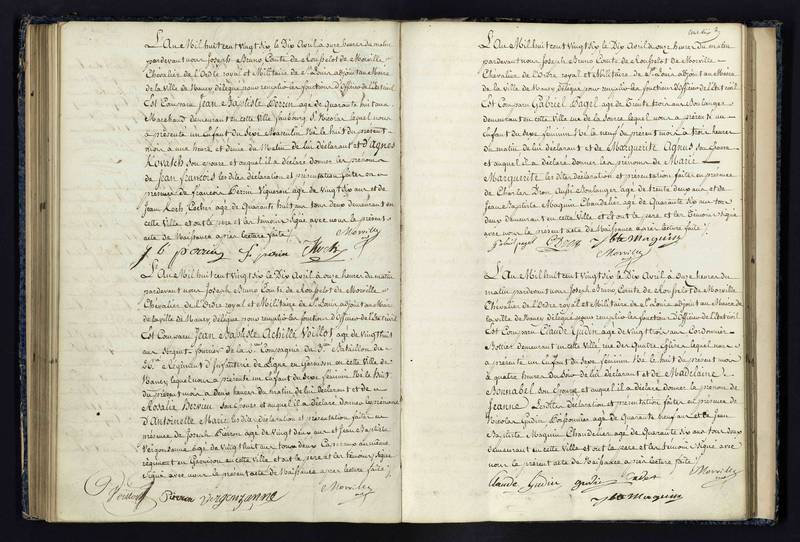 L'An Mil huit cent vingt dix le Dix Avril à onze heures du matin
pardevant nous Joseph Bruno Comte de Rouſſelot de Morville
Chevalier de l'Ordre royal et Militaire de St Louis adjoint au Maire
de la Ville de Nancy délégué pour remplir les fonctions d'Officier de l'Etat civil
Est Comparu Jean Baptiste Perrin agé de Quarante huit ans
Marchand demeurant en cette Ville faubourg St Nicolas lequel nous
a présenté un Enfant du Sexe Masculin Né le huit du présent
mois à une heure et demie du Matin de lui déclarant et d'Agnes
Kovatch son épouse et auquel il a déclaré donner les prénoms
de Jean François les dites déclaration et présentation faites en
présence de François Perrin Vigneron agé de Vingt dix ans et de
Jean Koch Cocher agé de Quarante huit ans tous deux demeurant en
cette Ville et ont le pere et les témoins Signé avec nous le présent
acte de Naissance après lecture faite /.
Morville
J b perrin f. perin JKoch
L'An Mil huit cent Vingt dix le Dix Avril à onze heures du matin
pardevant nous Joseph Bruno Comte de Rouſſelot de Morville
Chevalier de l'Ordre royal et Militaire de St Louis adjoint au Maire
de la ville de Nancy délégué pour remplir les fonctions d'Officier de l'Etat civil
Est Comparu Jean Baptiste Achille Voillot agé de Vingt huit
ans Sergent fourrier de la Compagnie du Bataillon du
Régiment d'Infanterie de Ligne en Garnison en cette Ville de
Nancy lequel nous a présenté un Enfant du Sexe féminin Né le huit
du présent mois à deux heures du matin de lui déclarant et de
Rosalie Son épouse et auquel il a déclaré donner les prénoms
d'Antoinette Marie les dites déclaration et présentation faites en
présence de Joseph Pierron agé de Vingt deux ans et Jean Baptiste
Vergonzanne agé de Vingt huit ans tous deux au même
régiment en Garnison en cette Ville et ont le pere et les témoins Signé
avec nous le présent acte de Naissance après lecture faite /.
Voillot Pierron Vergonzanne Morville
L'An Mil huit cent Vingt dix le Dix Avril à onze heures du matin
pardevant nous Joseph Bruno Comte de Rouſſelot de Morville
Chevalier de l'Ordre royal et Militaire de St Louis adjoint au Maire
de la Ville de Nancy délégué pour remplir les fonctions d'Officier de l'Etat civil
Est Comparu Gabriel Pagel agé de Trente trois ans Boulanger
demeurant en cette Ville rue de la Source lequel nous a présenté un
Enfant du Sexe féminin Né le neuf du présent mois à trois heures
du matin de lui déclarant et de Marguerite Agnus son épouse
et auquel il a déclaré donner les prénoms de Marie
Marguerite les dites déclaration et présentation faites en présence
de Charles Boulanger agé de trente deux ans et de
Jean Baptiste Maquin Chandelier agé de Quarante six ans tous
deux demeurant en cette Ville et ont le pere et les témoins Signé
avec nous le présent acte de Naissance après lecture faite /.
Jbte Maquin
Morville
L'An Mil huit cent Vingt dix le Dix Avril à onze heures du
matin pardevant nous Joseph Bruno Comte de Rouſſelot de Morville
Chevalier de l'Ordre royal et Militaire de St Louis adjoint au Maire de
la ville de Nancy délégué pour remplir les fonctions d'Officier de l'Etat civil
Est Comparu Claude Gudin agé de Vingt trois ans Cordonnier
Bottier demeurant en cette Ville rue des Quatre Eglises lequel nous
a présenté un Enfant du Sexe féminin Né le huit du présent mois
à quatre heures du Soir de lui déclarant et de Madelaine
Bonnabel son épouse et auquel il a déclaré donner le prénom de
Jeanne Les dites déclaration et présentation faites en présence de
Nicolas Gudin agé de Quarante neuf ans et de Jean
Baptiste Maquin Chandelier agé de Quarante six ans tous deux
demeurant en cette Ville et ont le pere et les témoins Signé avec
nous le présent acte de Naissance après lecture faite /.
Claude Gudin Morville
Jbte Maquin